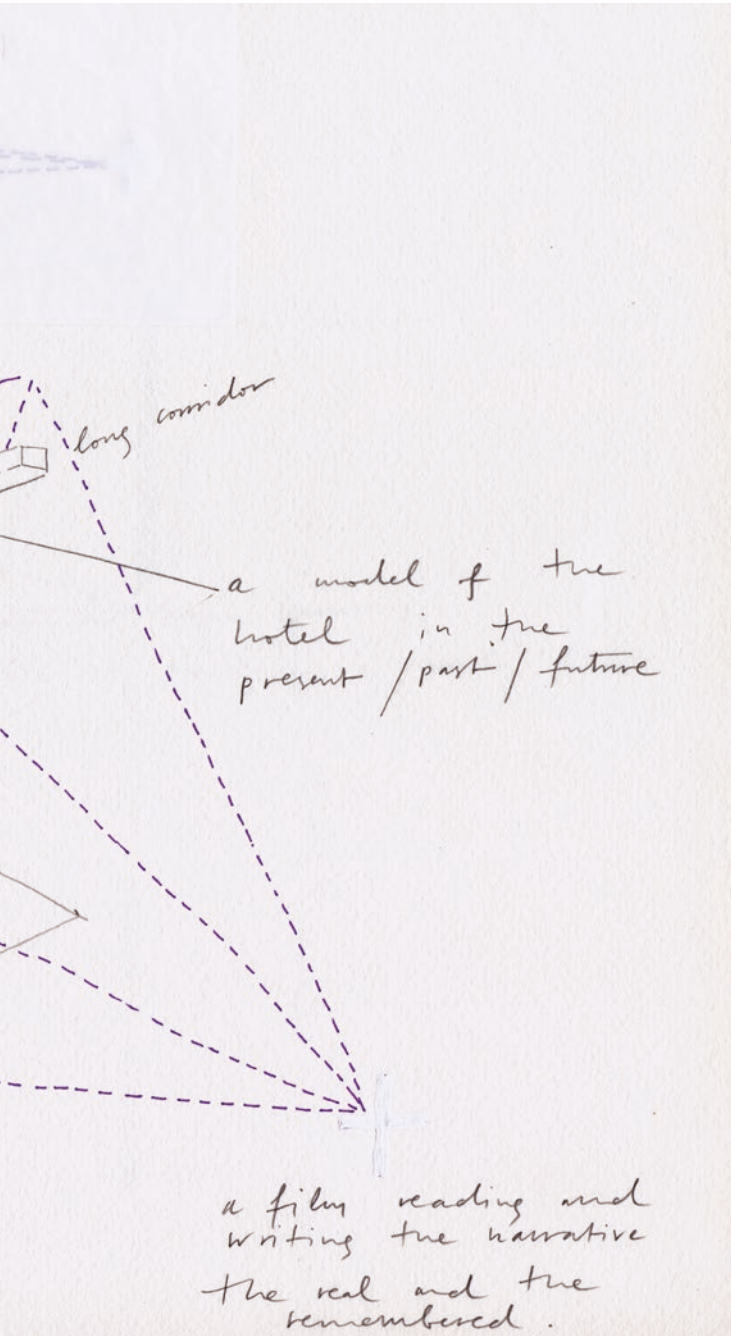 long corridor
a model of the
hotel in the
present / past / future
a film reading and
writing the narrative
the real and the
remembered .